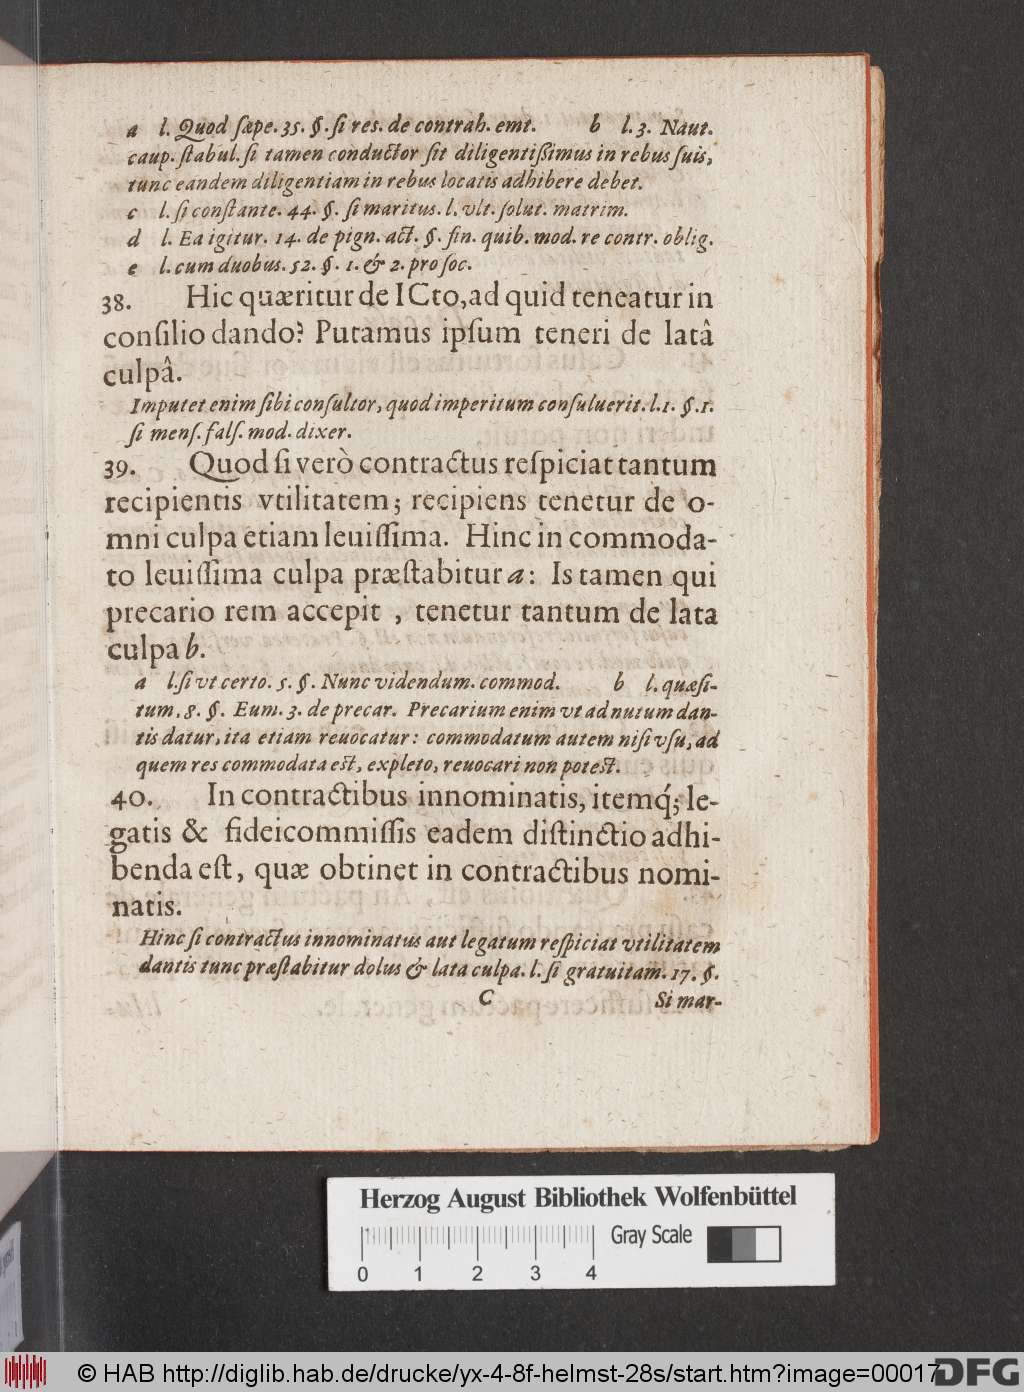 a l. Quod sæpe. 35. §. si res. de contrah. emt. b l. 3. Naut.
caup. stabul. si tamen conductor sit diligentißimus in rebus suis,
tunc eandem diligentiam in rebus locatis adhibere debet.
c l. si constante. 44. §. si maritus. l. vlt. solut. matrim.
d l. Ea igitur. 14. de pign. act. §. fin. quib. mod. re contr. oblig.
e l. cum duobus. 52. §. 1. & 2. pro soc.
38. Hic quæritur de ICto, ad quid teneatur in
consilio dando? Putamus ipsum teneri de latâ
culpâ.
Imputet enim sibi consultor, quod imperitum consuluerit. l. 1. §. 1.
si mens. fals. mod. dixer.
39. Quod si verò contractus respiciat tantum
recipientis vtilitatem; recipiens tenetur de o-
mni culpa etiam leuissima. Hinc in commoda-
to leuissima culpa præstabitur a: Is tamen qui
precario rem accepit , tenetur tantum de lata
culpa b.
a l. si vt certo. 5. §. Nunc videndum. commod. b l. quæsi-
tum. 8. §. Eum. 3. de precar. Precarium enim vt ad nutum dan-
tis datur, ita etiam reuocatur: commodatum autem nisi vsu, ad
quem res commodata est, expleto, reuocari non potest.
40. In contractibus innominatis, itemq́; le-
gatis & fideicommissis eadem distinctio adhi-
benda est, quæ obtinet in contractibus nomi-
natis.
Hinc si contractus innominatus aut legatum respiciat vtilitatem
dantis tunc præstabitur dolus & lata culpa. l. si gratuitam. 17. §.
C Si mar-
Herzog August Bibliothek Wolfenbüttel
Gray Scale
0 1 2 3 4
© HAB http://diglib.hab.de/drucke/yx-4-8f-helmst-28s/start.htm?image=00017
DFG